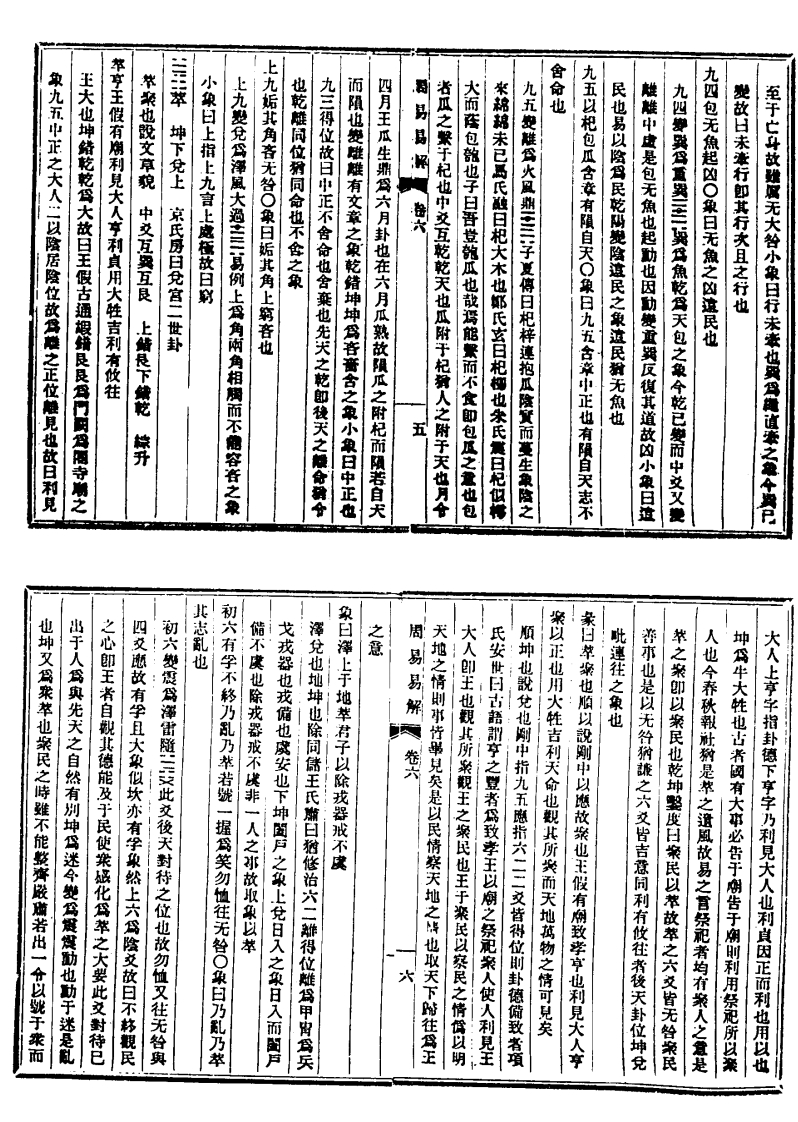 至于亡身故雖厲无大咎小象曰行未牽也巽爲繩直牽之象今巽已
變故曰未牽行卽其行次且之行也
九四包无魚起凶〇象曰无魚之凶遠民也
九四變巽爲重巽☴☴巽爲魚乾爲天包之象今乾已變而中爻又變
離離中虛是包无魚也起動也因動變重巽反復其道故凶小象曰遠
民也易以陰爲民乾陽變陰遠民之象遠民猶无魚也
九五以杞包瓜含章有隕自天〇象曰九五含章中正也有隕自天志不
舍命也
九五變離爲火風鼎☲☴子夏傳曰杞梓連抱瓜陰實而蔓生象陰之
來綿綿未已馬氏融曰杞大木也鄭氏玄曰杞柳也朱氏震曰杞似樗
大而蔭包匏也子曰吾豈匏瓜也哉焉能繫而不食卽包瓜之意也包
者瓜之繫于杞也中爻互乾乾天也瓜附于杞猶人之附于天也月令
周易易解 卷六 五
四月王瓜生鼎爲六月卦也在六月瓜熟故隕瓜之附杞而隕若自天
而隕也變離離有文章之象乾錯坤坤爲吝嗇含之象小象曰中正也
九三得位故曰中正不舍命也舍棄也先天之乾卽後天之離命猶令
也乾離同位猶同命也不舍之象
上九姤其角吝无咎〇象曰姤其角上窮吝也
上九變兌爲澤風大過☱☴易例上爲角兩角相觸而不能容吝之象
小象曰上指上九言上處極故曰窮
☱☷萃 坤下兌上 京氏房曰兌宮二世卦
萃聚也說文草貌 中爻互巽互艮 上錯艮下錯乾 綜升
萃亨王假有廟利見大人亨利貞用大牲吉利有攸往
王大也坤錯乾乾爲大故曰王假古通嘏錯艮艮爲門闕爲閽寺廟之
象九五中正之大人二以陰居陰位故爲離之正位離見也故曰利見
大人上亨字指卦德下亨字乃利見大人也利貞因正而利也用以也
坤爲牛大牲也古者國有大事必告于廟告于廟則利用祭祀所以聚
人也今春秋報社猶是萃之遺風故易之言祭祀者均有聚人之意是
萃之聚卽以聚民也乾坤鑿度曰聚民以萃故萃之六爻皆无咎聚民
善事也是以无咎猶謙之六爻皆吉意同利有攸往者後天卦位坤兌
毗連往之象也
彖曰萃聚也順以說剛中以應故聚也王假有廟致孝亨也利見大人亨
聚以正也用大牲吉利天命也觀其所聚而天地萬物之情可見矣
順坤也說兌也剛中指九五應指六二二爻皆得位則卦德備致者項
氏安世曰古語謂亨之豐者爲致孝王以廟之祭祀聚人使人利見王
大人卽王也觀其所聚觀王之聚民也王于聚民以察民之情僞以明
天地之情則事皆畢見矣是以民情察天地之情也取天下歸往爲王
周易易解 卷六 六
之意
象曰澤上于地萃君子以除戎器戒不虞
澤兌也地坤也除同儲王氏肅曰猶修治六二離得位離爲甲冑爲兵
戈戎器也戎備也虞安也下坤闔戶之象上兌日入之象日入而闔戶
備不虞也除戎器戒不虞非一人之事故取象以萃
初六有孚不終乃亂乃萃若號一握爲笑勿恤往无咎〇象曰乃亂乃萃
其志亂也
初六變震爲澤雷隨☱☳此爻後天對待之位也故勿恤又往无咎與
四爻應故有孚且大象似坎亦有孚象然上六爲陰爻故曰不終觀民
之心卽王者自觀其德能及于民使衆感化爲萃之大要此爻對待已
出于人爲與先天之自然有別坤爲迷今變爲震震動也動于迷是亂
也坤又爲衆萃也聚民之時雖不能整齊嚴肅若出一令以號于衆而